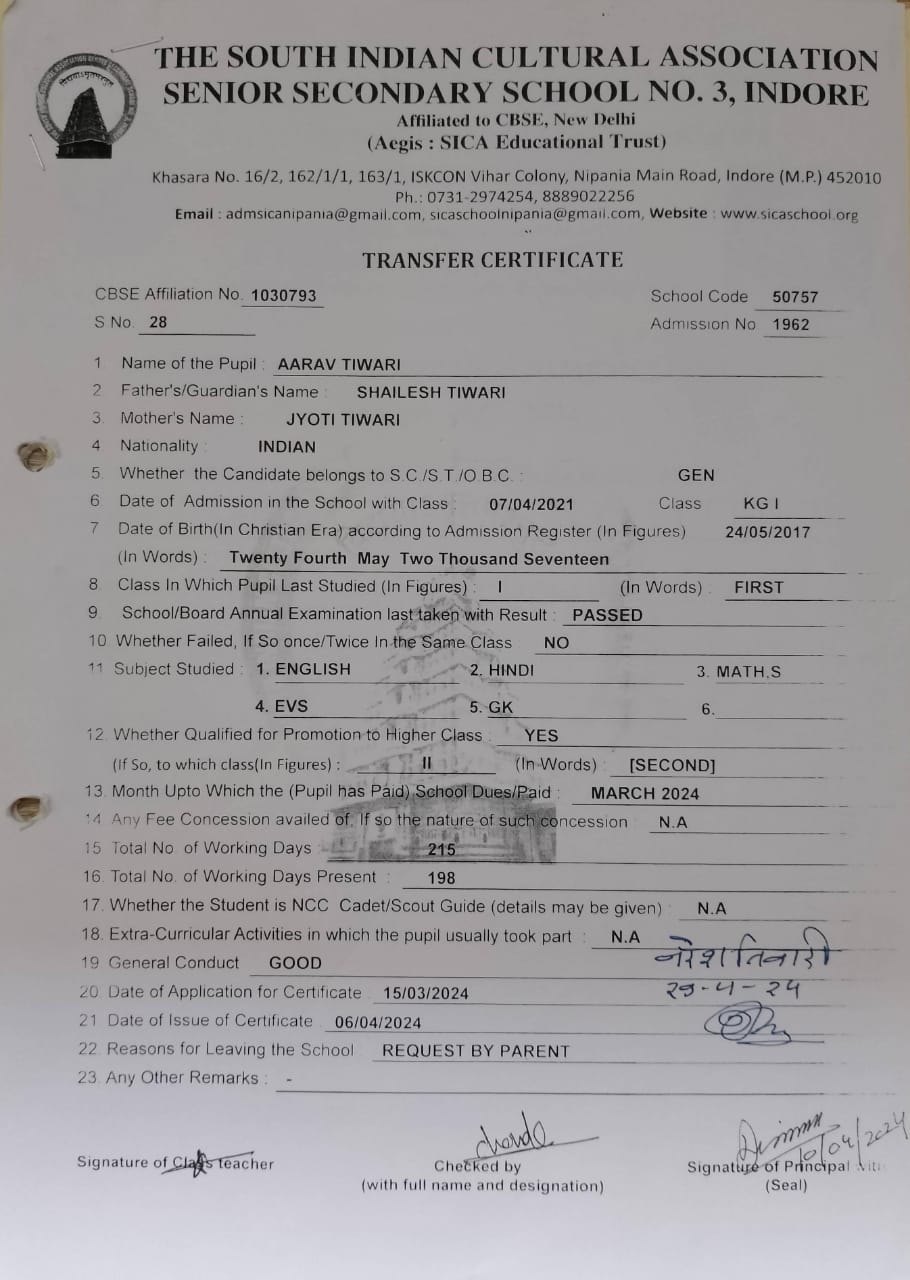 THE SOUTH INDIAN CULTURAL ASSOCIATION
SENIOR SECONDARY SCHOOL NO. 3, INDORE
Affiliated to CBSE, New Delhi
(Aegis : SICA Educational Trust)
Khasara No. 16/2, 162/1/1, 163/1, ISKCON Vihar Colony, Nipania Main Road, Indore (M.P.) 452010
Ph.: 0731-2974254, 8889022256
Email : admsicanipania@gmail.com, sicaschoolnipania@gmail.com, Website : www.sicaschool.org
TRANSFER CERTIFICATE
CBSE Affiliation No. 1030793 School Code 50757
S No. 28 Admission No 1962
1 Name of the Pupil : AARAV TIWARI
2 Father's/Guardian's Name : SHAILESH TIWARI
3. Mother's Name : JYOTI TIWARI
4 Nationality : INDIAN
5. Whether the Candidate belongs to S.C./S.T./O.B.C. : GEN
6. Date of Admission in the School with Class : 07/04/2021 Class KG I
7 Date of Birth(In Christian Era) according to Admission Register (In Figures) 24/05/2017
(In Words) : Twenty Fourth May Two Thousand Seventeen
8. Class In Which Pupil Last Studied (In Figures) : I (In Words) : FIRST
9. School/Board Annual Examination last taken with Result : PASSED
10 Whether Failed, If So once/Twice In the Same Class NO
11 Subject Studied : 1. ENGLISH 2. HINDI 3. MATH,S
4. EVS 5. GK 6.
12. Whether Qualified for Promotion to Higher Class : YES
(If So, to which class(In Figures) : II (In Words) : [SECOND]
13. Month Upto Which the (Pupil has Paid) School Dues/Paid : MARCH 2024
14 Any Fee Concession availed of, If so the nature of such concession N.A
15 Total No. of Working Days : 215
16. Total No. of Working Days Present : 198
17. Whether the Student is NCC Cadet/Scout Guide (details may be given) : N.A
18. Extra-Curricular Activities in which the pupil usually took part : N.A
नरेश तिवारी
19 General Conduct GOOD
20. Date of Application for Certificate : 15/03/2024
२९-4-२4
21 Date of Issue of Certificate : 06/04/2024
22. Reasons for Leaving the School REQUEST BY PARENT
23. Any Other Remarks : -
10/04/2024
Signature of Class teacher Checked by Signature of Principal
(with full name and designation) (Seal)